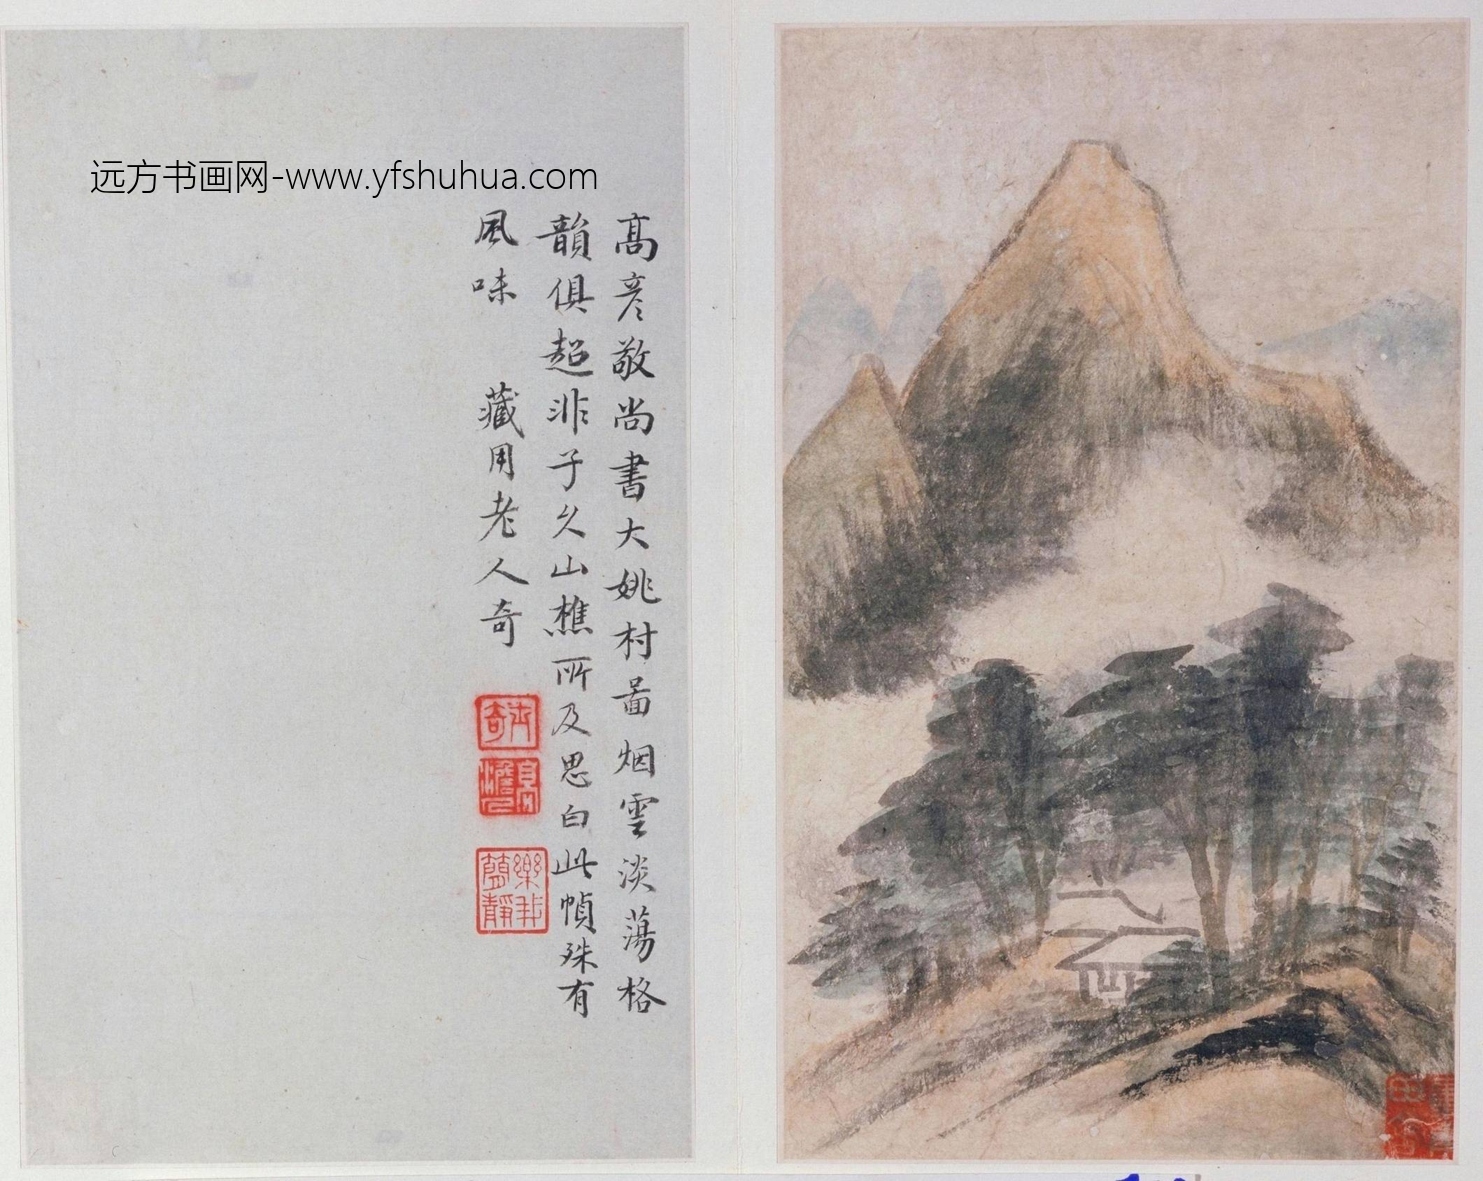 远方书画网-www.yfshuhua.com
高彦敬尚書大姚村啚烟雲淡蕩格
韻俱超非子久山樵所及思白此幀殊有
風味　藏用老人奇
士奇
高澹人
樂我
簡靜